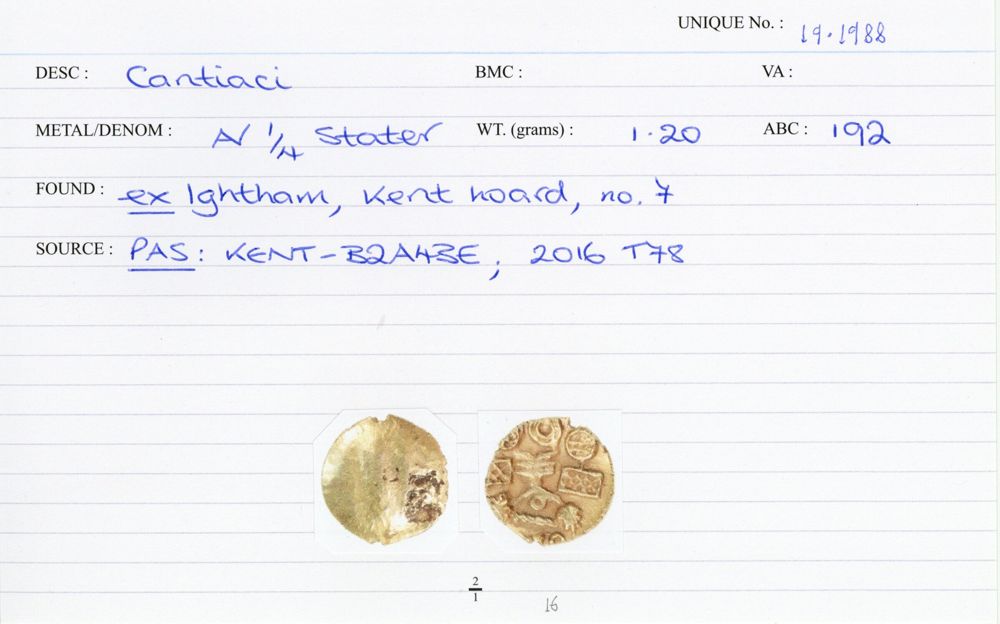 UNIQUE No. : 19.1988
DESC : Cantiaci BMC : VA :
METAL/DENOM : AV 1/4 Stater WT. (grams) : 1.20 ABC : 192
FOUND : ex Ightham, Kent hoard, no. 7
SOURCE : PAS: KENT-B2A43E; 2016 T78
2
1
16